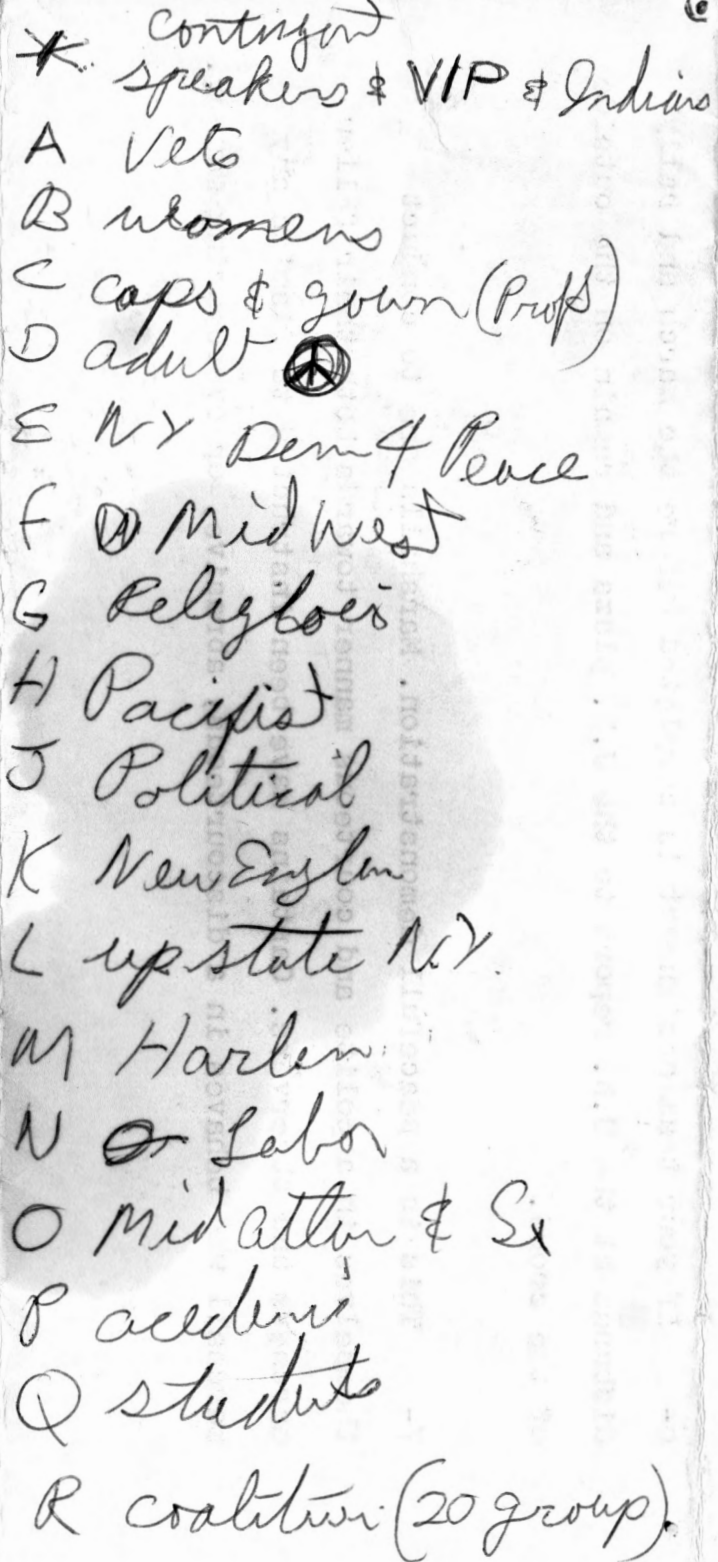 contingent
* speakers & VIP & Indians
A Vets
B womens
C caps & gown (Profs)
D adult ☮
E NY Dem 4 Peace
F Mid West
G Religious
H Pacifist
J Political
K New Englan
L upstate N.Y.
M Harlem
N Labor
O Mid atlan &
P academic
Q students
R coalition (20 group).